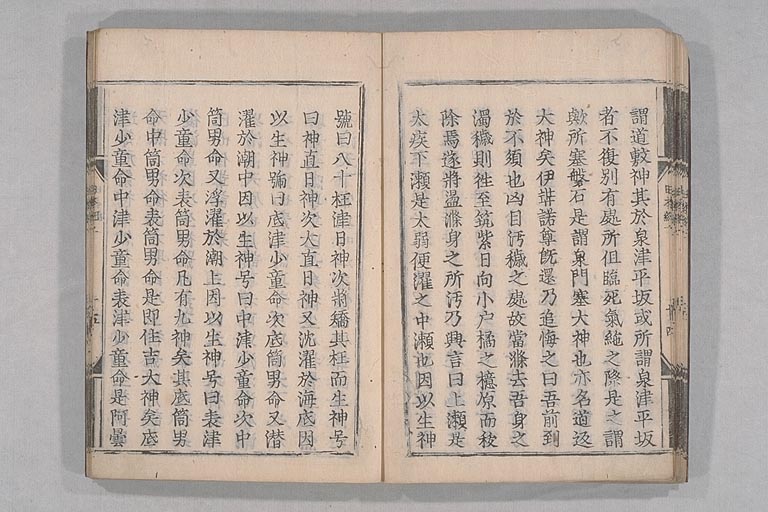 謂道敷神其於泉津平坂或所謂泉津平坂
者不復別有處所但臨死氣絶之際是之謂
歟所塞磐石是謂泉門塞大神也亦名道返
大神矣伊弉諾尊旣還乃追悔之曰吾前到
於不須也凶目汚穢之處故當滌去吾身之
濁穢則徃至筑紫日向小戶橘之檍原而秡
除焉遂將盪滌身之所汚乃興言曰上瀬是
太疾下瀬是太弱便濯之中瀬也因以生神
號曰八十枉津日神次將矯其枉而生神号
曰神直日神次大直日神又沈濯於海底因
以生神號曰底津少童命次底筒男命又潜
濯於潮中因以生神号曰中津少童命次中
筒男命又浮濯於潮上因以生神号曰表津
少童命次表筒男命凡有九神矣其底筒男
命中筒男命表筒男命是即住吉大神矣底
津少童命中津少童命表津少童命是阿曇